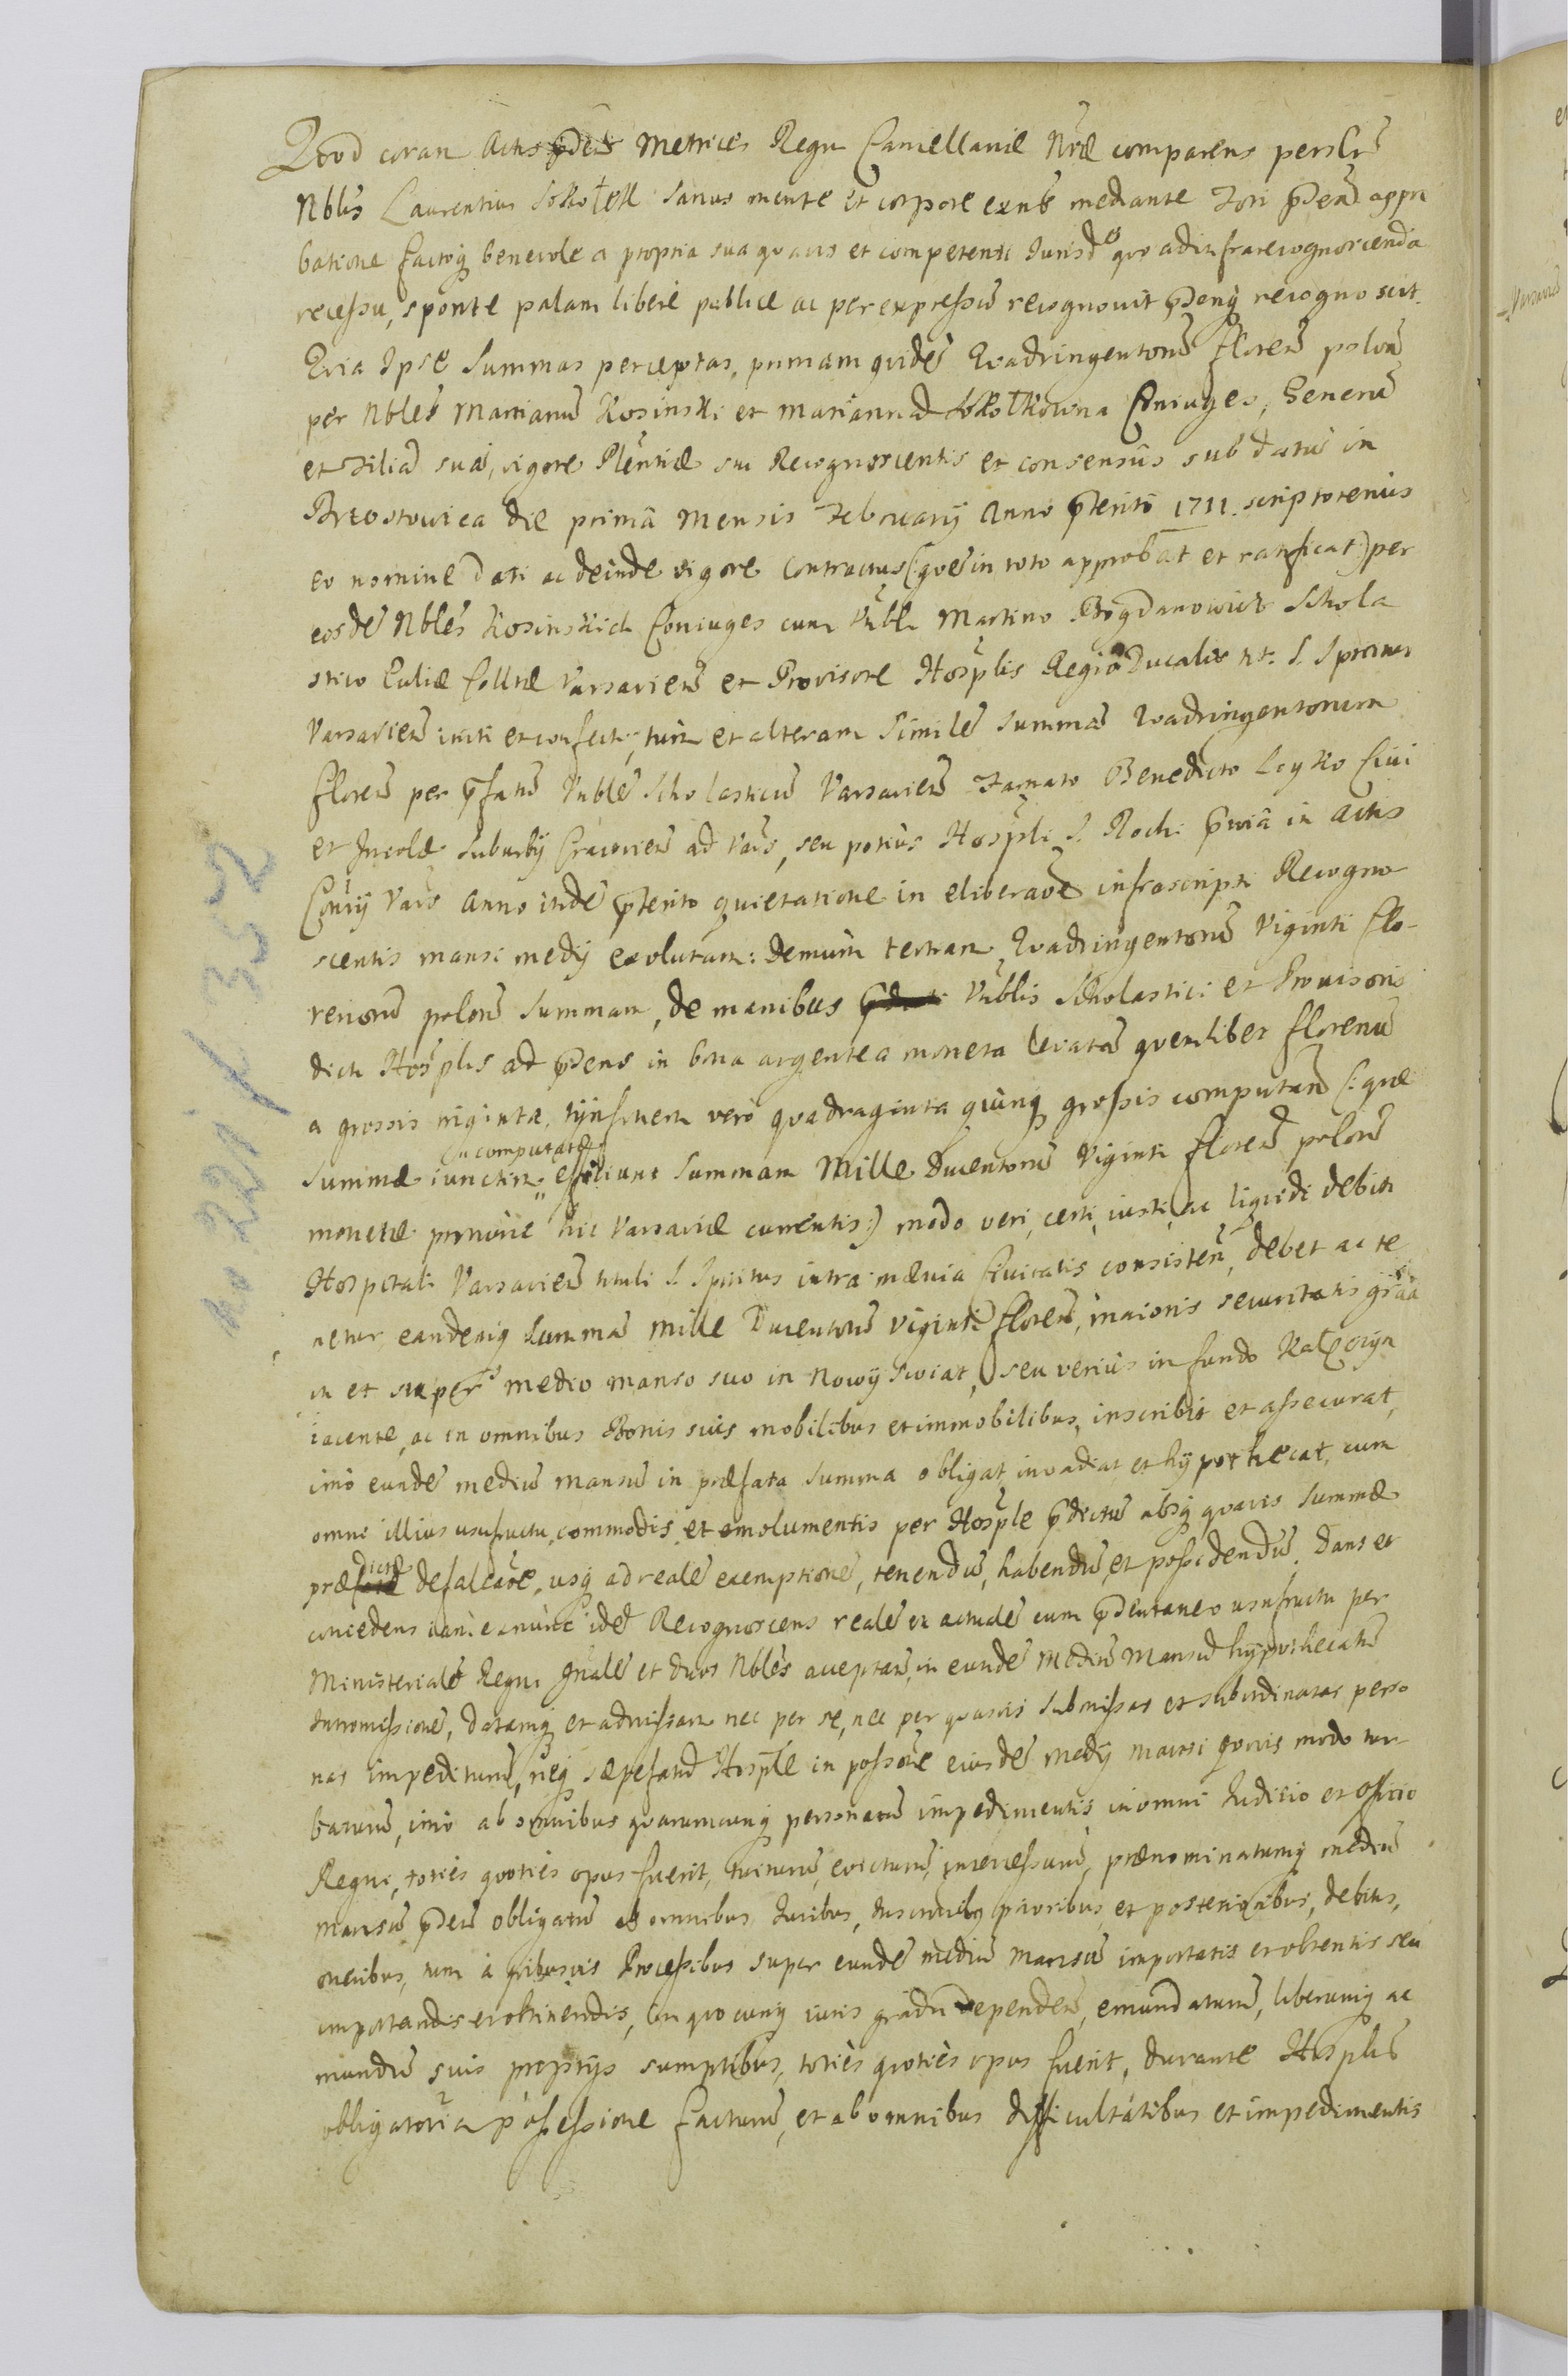 Quod coram Actis pñtibus Metrices Regni Cancellariæ Nræ comparens persлr̃
Nblis Laurentius Sokołek sanus mente et corpore exñs mediante Fori p̃den̄ appro
batione factoq̃ benevole a propria sua quavis et competenti Jurisd̃e quo ad infra recognoscenda
recessu, sponte palam libere publice ac per expressu recognovit p̃denq̃ recognoscit.
Quia Ipse Summas perceptas, primam quidẽ Quadringentorũ floreñ poloñ
per Nbles Martianũ Kosinski et Mariannã Sokołkowna Coniuges, Generũ
et Filiã suã, vigore Plentiæ sui Recognoscentis et consensûs sub datũ in
Brzostowica die primâ Mensis February Anno p̃terito 1711. scriptotenius
eo nomine dati ac deinde vigore Contractus (quẽ in toto approbat et ratificat) per
eosdẽ Nbles Kosinskich Coniuges cum Vñbli Martino Bogdanowicz Schola
stico Eccliæ Colltæ Varsavieñ et Provisore Hosplis Regio Ducalis tt. S. Spiritus
Varsavieñ initi et confecti, tum et alteram similẽ summã Quadringentorum
floreñ per p̃fatũ Vnblẽ Scholasticũ Varsavieñ Famato Benedicto Loyko Civi
et Incolæ Suburbij Cracovieñ ad Vars, seu potiùs Hospli S. Rochi p̃viâ in Actis
Consrij Vars Anno itidẽ p̃terito quietatione in eliberaõe infrascripti Recogno
scentis mansi medij exolutam: demum tertiam Quadringentorũ Viginti flo-
renorũ poloñ Summam, de manibus Vnblis Scholastici et Provisoris
dicti Hosplis ad p̃dens in bona argentea moneta levatã quemlibet florenũ
a grossis triginta, tynfonem vero quadraginta quinq̃ grossis computanđ (: quæ
Summæ iunctim computatæ efficiunt Summam Mille Ducentorũ Viginti floreñ poloñ
monetæ pronunc hic Varsaviæ currentis:) modo veri, certi, iusti, ac liquidi debiti
Hospitali Varsavieñ tituli S. Spiritus intra mœnia Civitatis consisteñ, debet ac te
netur, eandemq̃ Summã Mille Ducentorũ Viginti floreñ, maioris securitatis grãa
in et super medio manso suo in Nowy Swiat, seu verius in fundo Kałęczyn
iacente, ac in omnibus Bonis suis mobilibus et immobilibus, inscribit et assecurat,
imò eundẽ mediũ mansũ in præfata Summa obligat, invadiat et hypothecat, cum
omni illius usufructu, commodis et emolumentis per Hosple p̃dictũ absq̃ quavis Summæ
prædictæ defalcaõe, usq̃ ad realẽ exemptionẽ, tenendũ, habendũ et possidendũ. Dans et
concedens iam exnunc idẽ Recognoscens realẽ et actualẽ cum p̃dentaneo usufructu per
Ministerialẽ Regni Gnalẽ et duos Nbles acceptanđ, in eundẽ Mediũ Mansũ hypothecatũ
Intromissionẽ, datamq̃ et admissam nec per se, nec per quasvis submissas et subordinatas perso
nas impediturũ, neq̃ sæpefatũ Hosple in posseõe eiusdẽ medij mansi quovis modo tur
baturũ, imò ab omnibus quarumcunq̃ personarũ impedimentis in omni Judicio et Officio
Regni, toties quoties opus fuerit, tuiturũ, evicturũ, intercessurũ, prænominatumq̃ mediũ
mansũ p̃deñ obligatũ ab omnibus Juribus, Inscriptib9 prioribus et posterioribus, debitis,
oneribus, tum à quibusvis Processibus super eundẽ mediũ Mansũ importatis et obtentis seu
importandis et obtinendis, in quocunq̃ iuris gradu dependeñ, emundaturũ, liberumq̃ ac
mundũ suis proprijs sumptibus, toties quoties opus fuerit, durante Hosplis
obligatoria possessione facturũ, et ab omnibus difficultatibus et impedimentis
No 221 f. 352